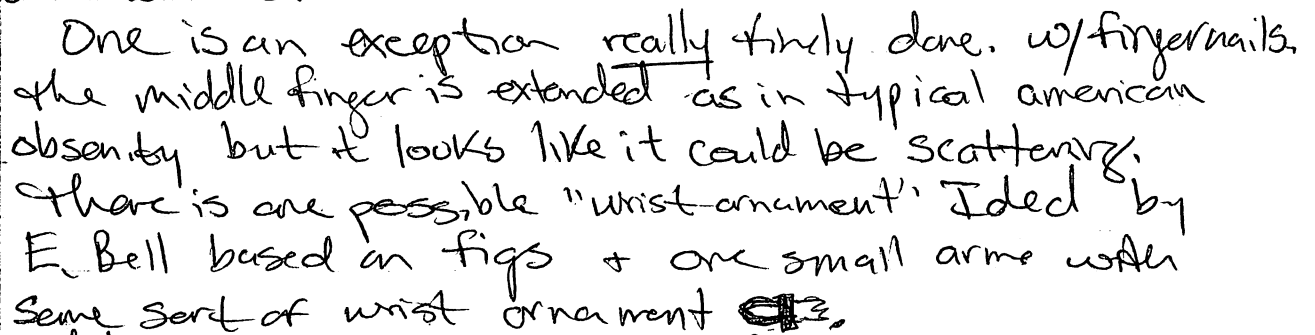 One is an exception really finely done. w/fingernails.
the middle finger is extended as in typical american
obsenity but it looks like it could be scattering.
There is one possible "wrist-ornament". Ided by
E. Bell based on figs + one small arm with
same sort of wrist ornament